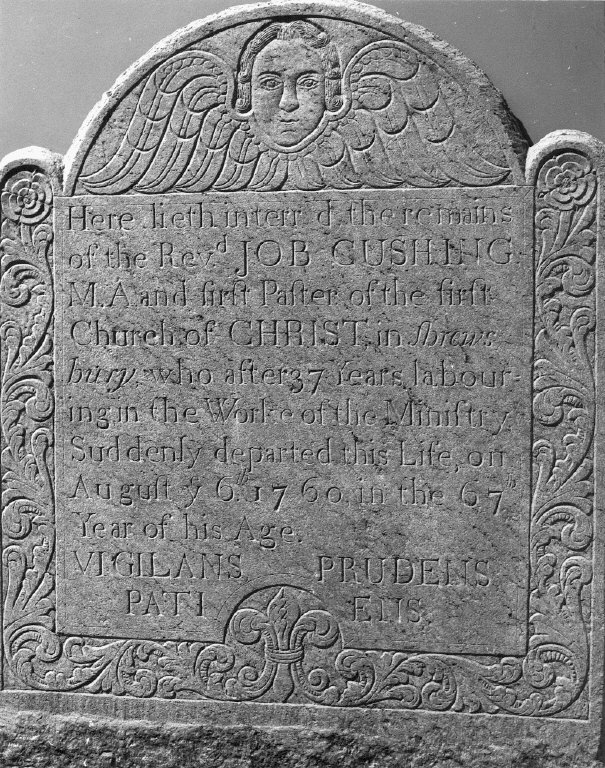 Here lieth interr'd the remains
of the Revd JOB CUSHING
M.A. and first Paster of the first
Church of CHRIST, in Shrews
bury, who after 37 Years labour-
ing in the Worke of the Ministry
Suddenly departed this Life, on
August ye 6th 1760, in the 67th
Year of his Age.
VIGILANS PRUDENS
PATI ENS.